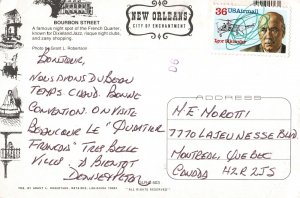 BOURBON STREET
A famous night spot of the French Quarter,
known for Dixieland Jazz, risque night clubs,
and zany shopping.
Photo by Grant L. Robertson
NEW ORLEANS
CITY OF ENCHANTMENT
36 USAirmail
Igor Sikorsky
BONJOUR,
NOUS AVONS DU BEAU
TEMPS CHAUD. BONNE
CONVENTION. ON VISITE
BEAUCOUP LE "QUARTIER
FRANCAIS" TRES BELLE
VILLE. A BIENTOT
DENISE & PETER
ADDRESS
M E MOROTTI
7770 LAJEUNESSE BLVD
MONTREAL QUEBEC
CANADA H2R 2J5
PUB. BY GRANT L. ROBERTSON, METAIRIE, LOUISIANA 70003
"ALL RIGHTS RESERVED"